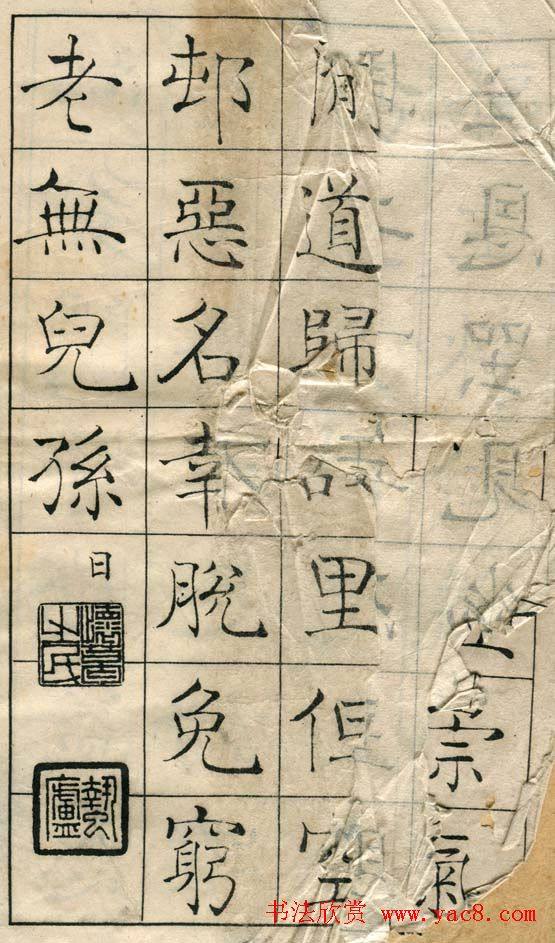 宗氣
閒道歸故里但空
邨惡名幸脫免窮
老無兒孫
日
书法欣赏 www.yac8.com